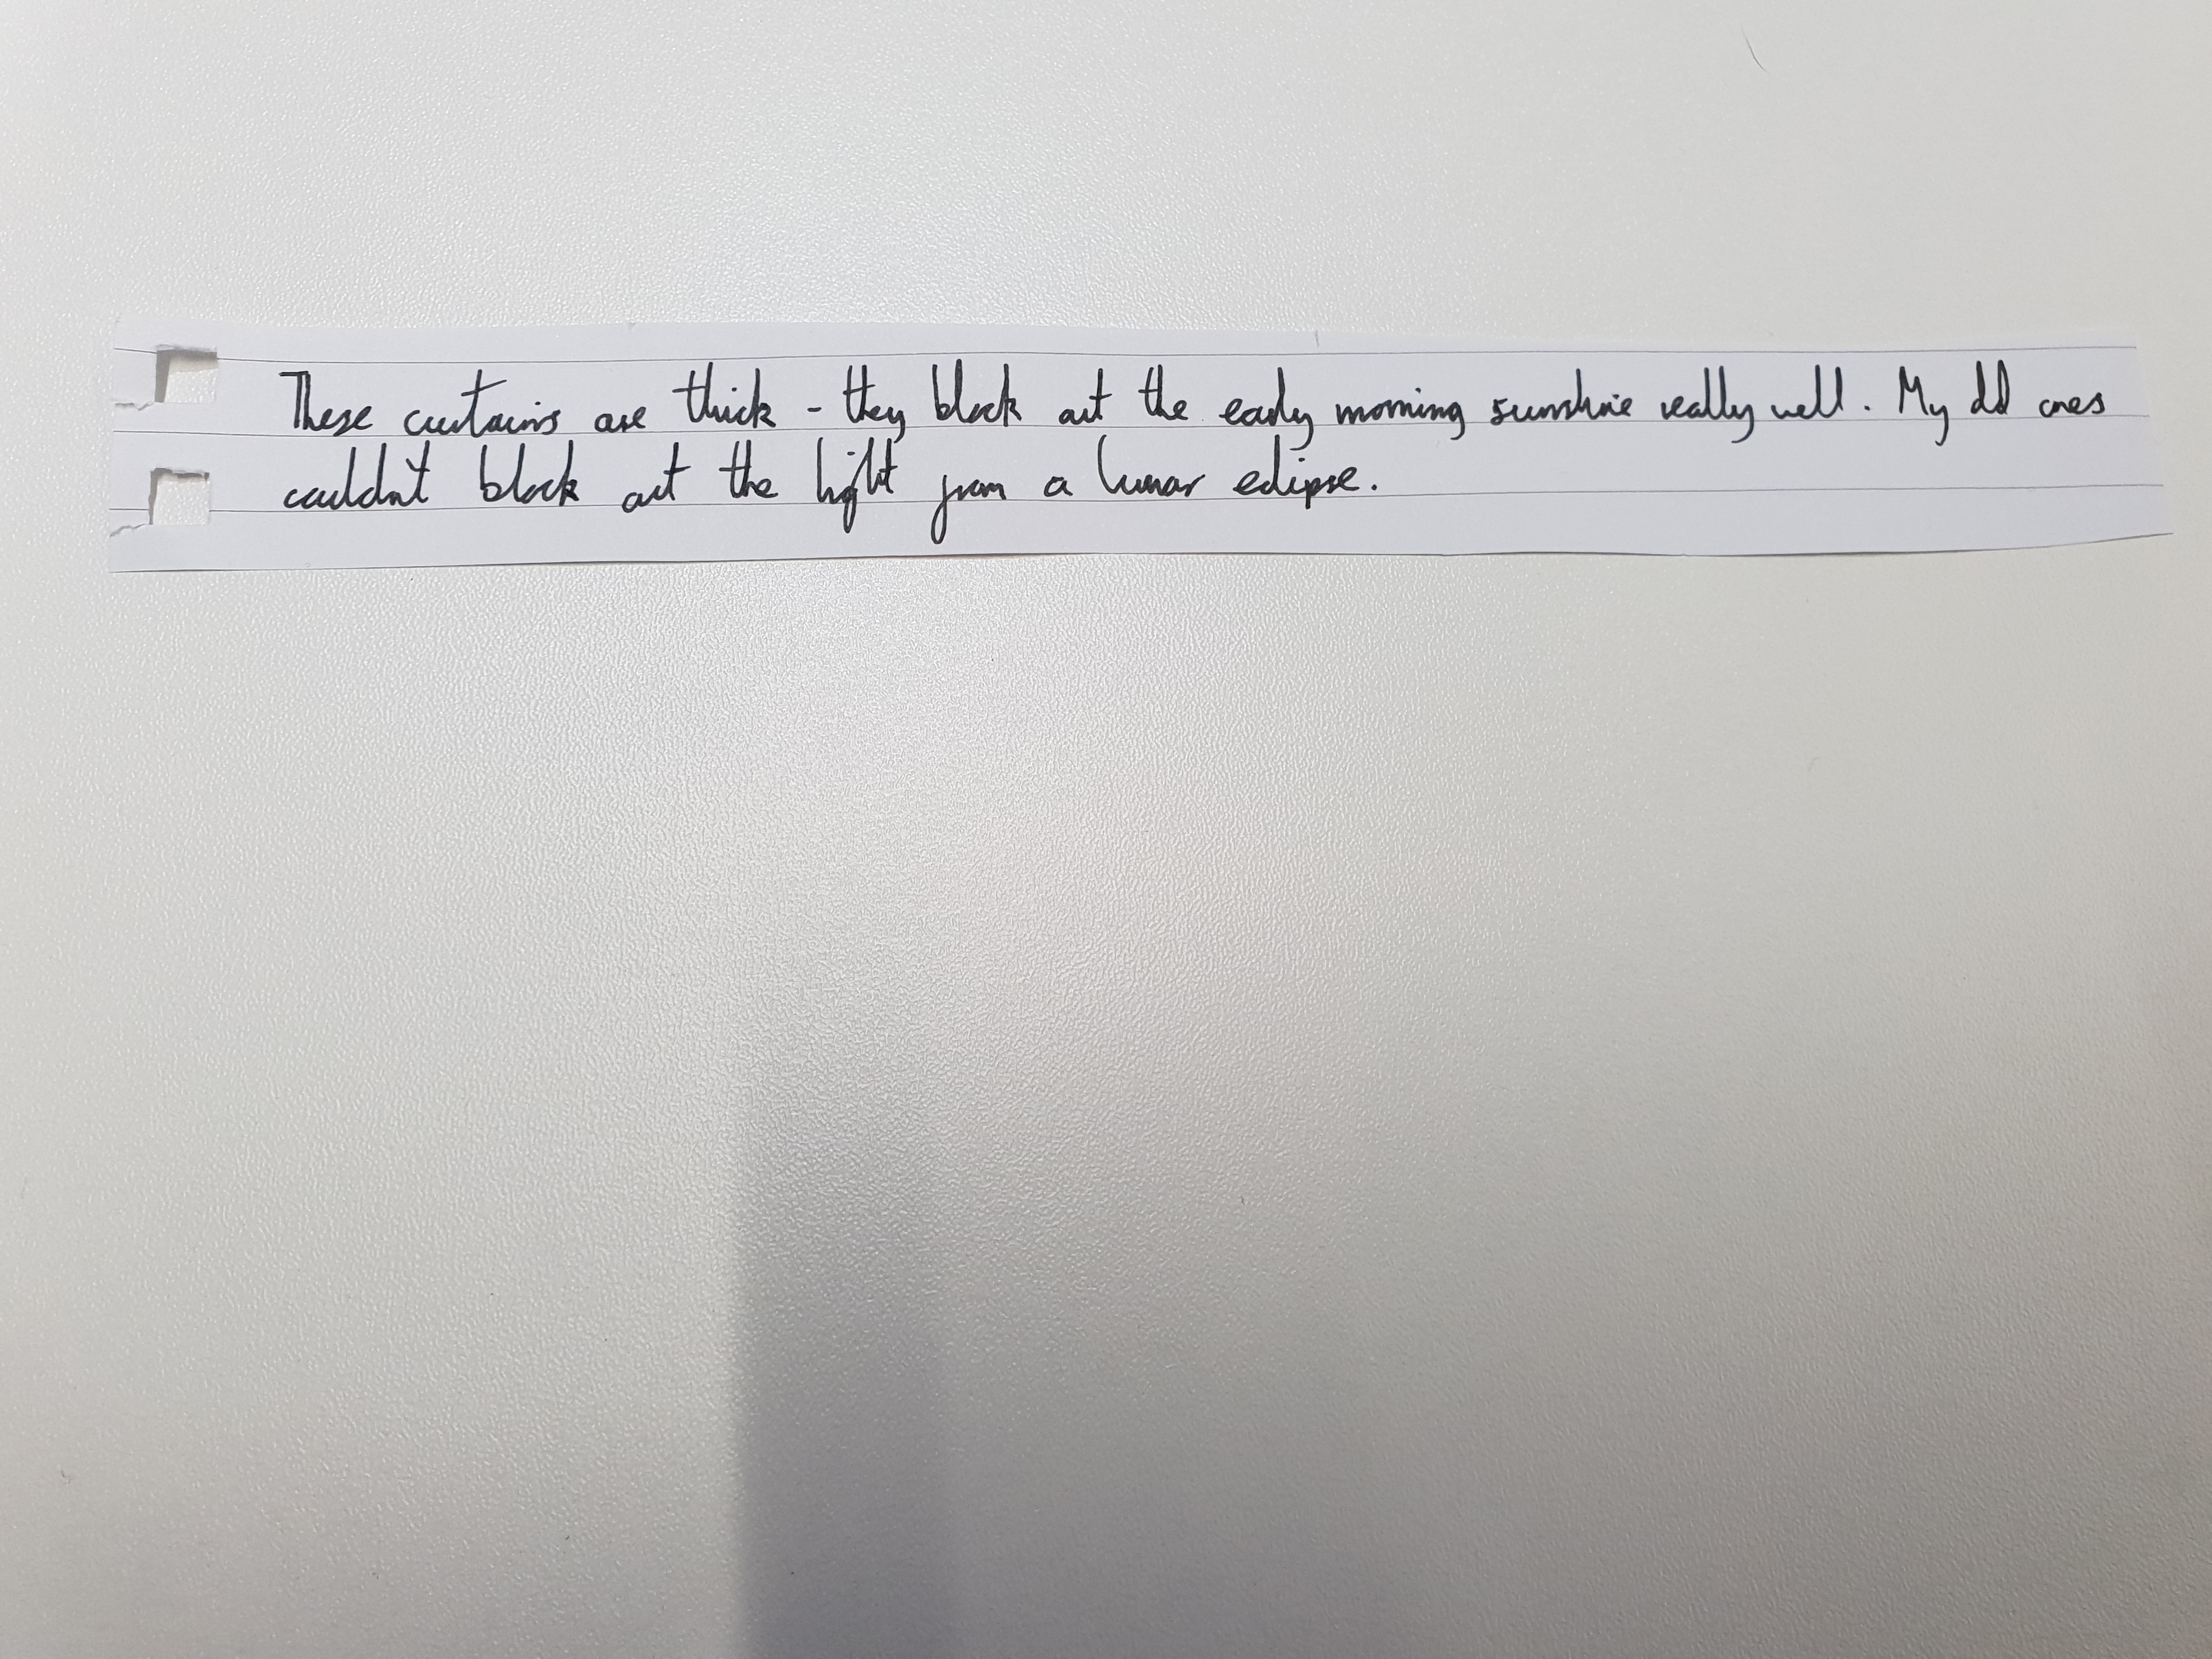 These curtains are thick - they block out the early morning sunshine really well. My old ones
couldn't block out the light from a lunar eclipse.